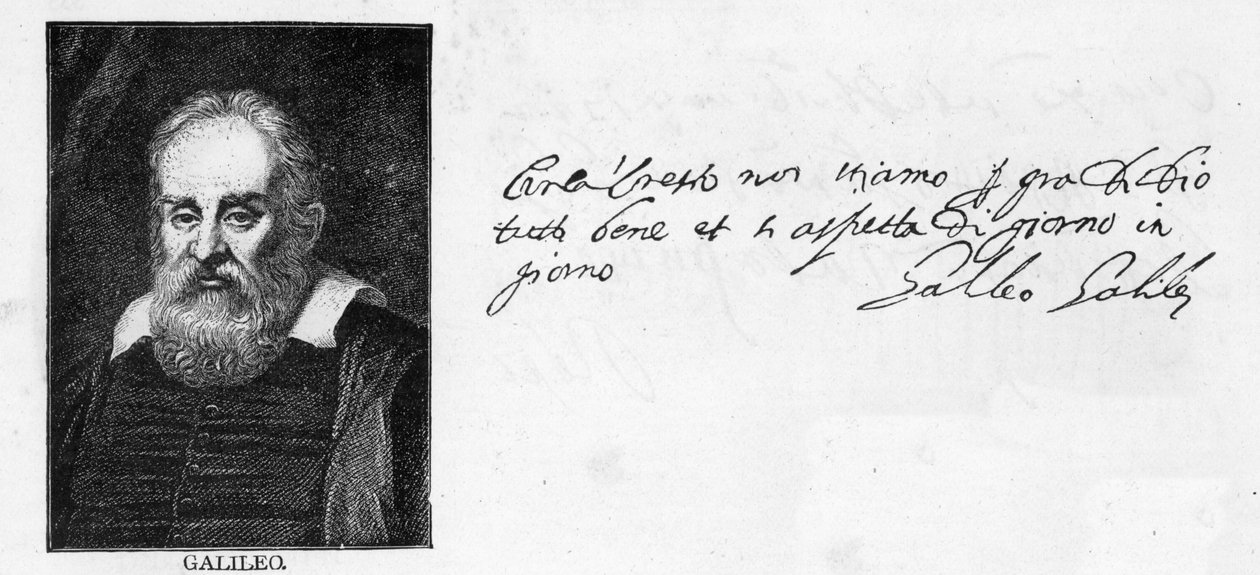 Circa 'l resto noi stiamo p gra di Dio
tutti bene et si aspetta di giorno in
giorno Galileo Galilei
GALILEO.